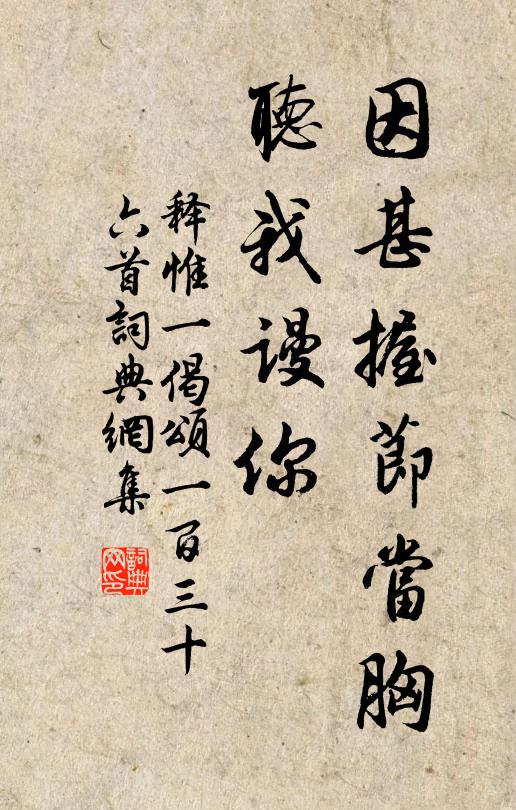 因甚握節當胸
聽我謾你
释惟一偈頌一百三十
六首詞典網集
詞典网印